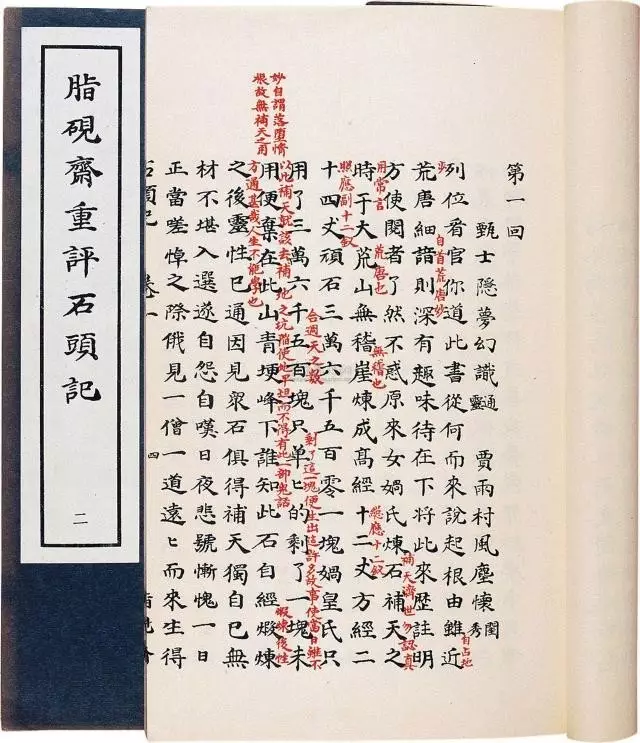 脂硯齋重評石頭記
二
第一回
甄士隱夢幻識通靈 賈雨村風塵懷閨秀
列位看官你道此書從何而來說起根由雖近
自占地
妙
荒唐細諳則深有趣味待在下將此來歷註明
自首荒唐妙
方使閱者了然不惑原來女媧氏煉石補天之
補天濟世勿認真
用常言
時于大荒山無稽崖煉成高經十二丈方經二
荒唐也
無稽也
總應十二釵
照應副十二釵
十四丈頑石三萬六千五百零一塊媧皇氏只
合週天之數
用了三萬六千五百塊只單匕的剩了一塊未
剩了這一塊便生出這許多故事使當日雖不
以此補天就該去補地之坑陷使地平坦而不得有此一部鬼話
用便棄在此山青埂峰下誰知此石自經煆煉
妙自謂落墮情
根故無補天之用
煆煉後性
方通甚哉人生不能學也
之後靈性已通因見衆石俱得補天獨自己無
材不堪入選遂自怨自嘆日夜悲號慚愧一日
正當嗟悼之際俄見一僧一道遠匕而來生得
石頭記 卷一 四